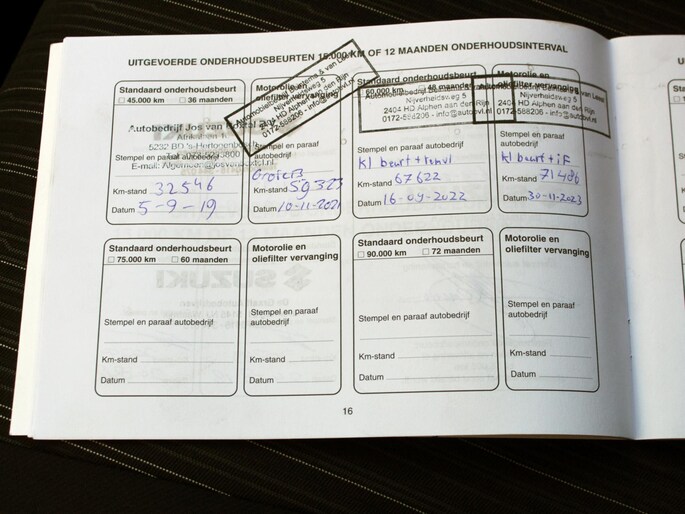 UITGEVOERDE ONDERHOUDSBEURTEN 15.000 KM OF 12 MAANDEN ONDERHOUDSINTERVAL
Standaard onderhoudsbeurt
☐ 45.000 km ☐ 36 maanden
Autobedrijf Jos van
5232 BD 's-Hertogenbosch
Stempel en paraaf autobedrijf
E-mail:
Km-stand 32546
Datum 5-9-19
Motorolie en
oliefilter vervanging
Nijverheidsweg 5
2404 HD Alphen aan den Rijn
0172-586206 - info@autobvl.nl
Stempel en paraaf
autobedrijf
Km-stand 59323
Datum 10-11-2021
Standaard onderhoudsbeurt
☐ 60.000 km ☐ 48 maanden
Nijverheidsweg 5
2404 HD Alphen aan den Rijn
0172-586206 - info@autobvl.nl
Stempel en paraaf autobedrijf
Kl beurt +
Km-stand 67622
Datum 16-09-2022
Motorolie en
oliefilter vervanging
Nijverheidsweg 5
2404 HD Alphen aan den Rijn
0172-586206 - info@autobvl.nl
Stempel en paraaf
autobedrijf
Kl beurt + iF
Km-stand 71486
Datum 30-11-2023
Standaard onderhoudsbeurt
☐ 75.000 km ☐ 60 maanden
Stempel en paraaf autobedrijf
Km-stand
Datum
Motorolie en
oliefilter vervanging
SUZUKI
Stempel en paraaf
autobedrijf
Km-stand
Datum
Standaard onderhoudsbeurt
☐ 90.000 km ☐ 72 maanden
Stempel en paraaf autobedrijf
Km-stand
Datum
Motorolie en
oliefilter vervanging
Stempel en paraaf
autobedrijf
Km-stand
Datum
16